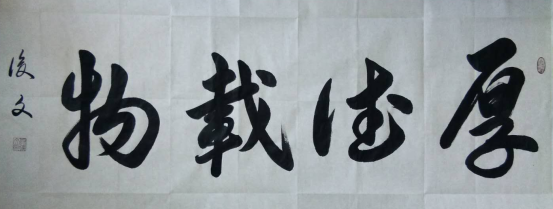 厚德載物
俊文